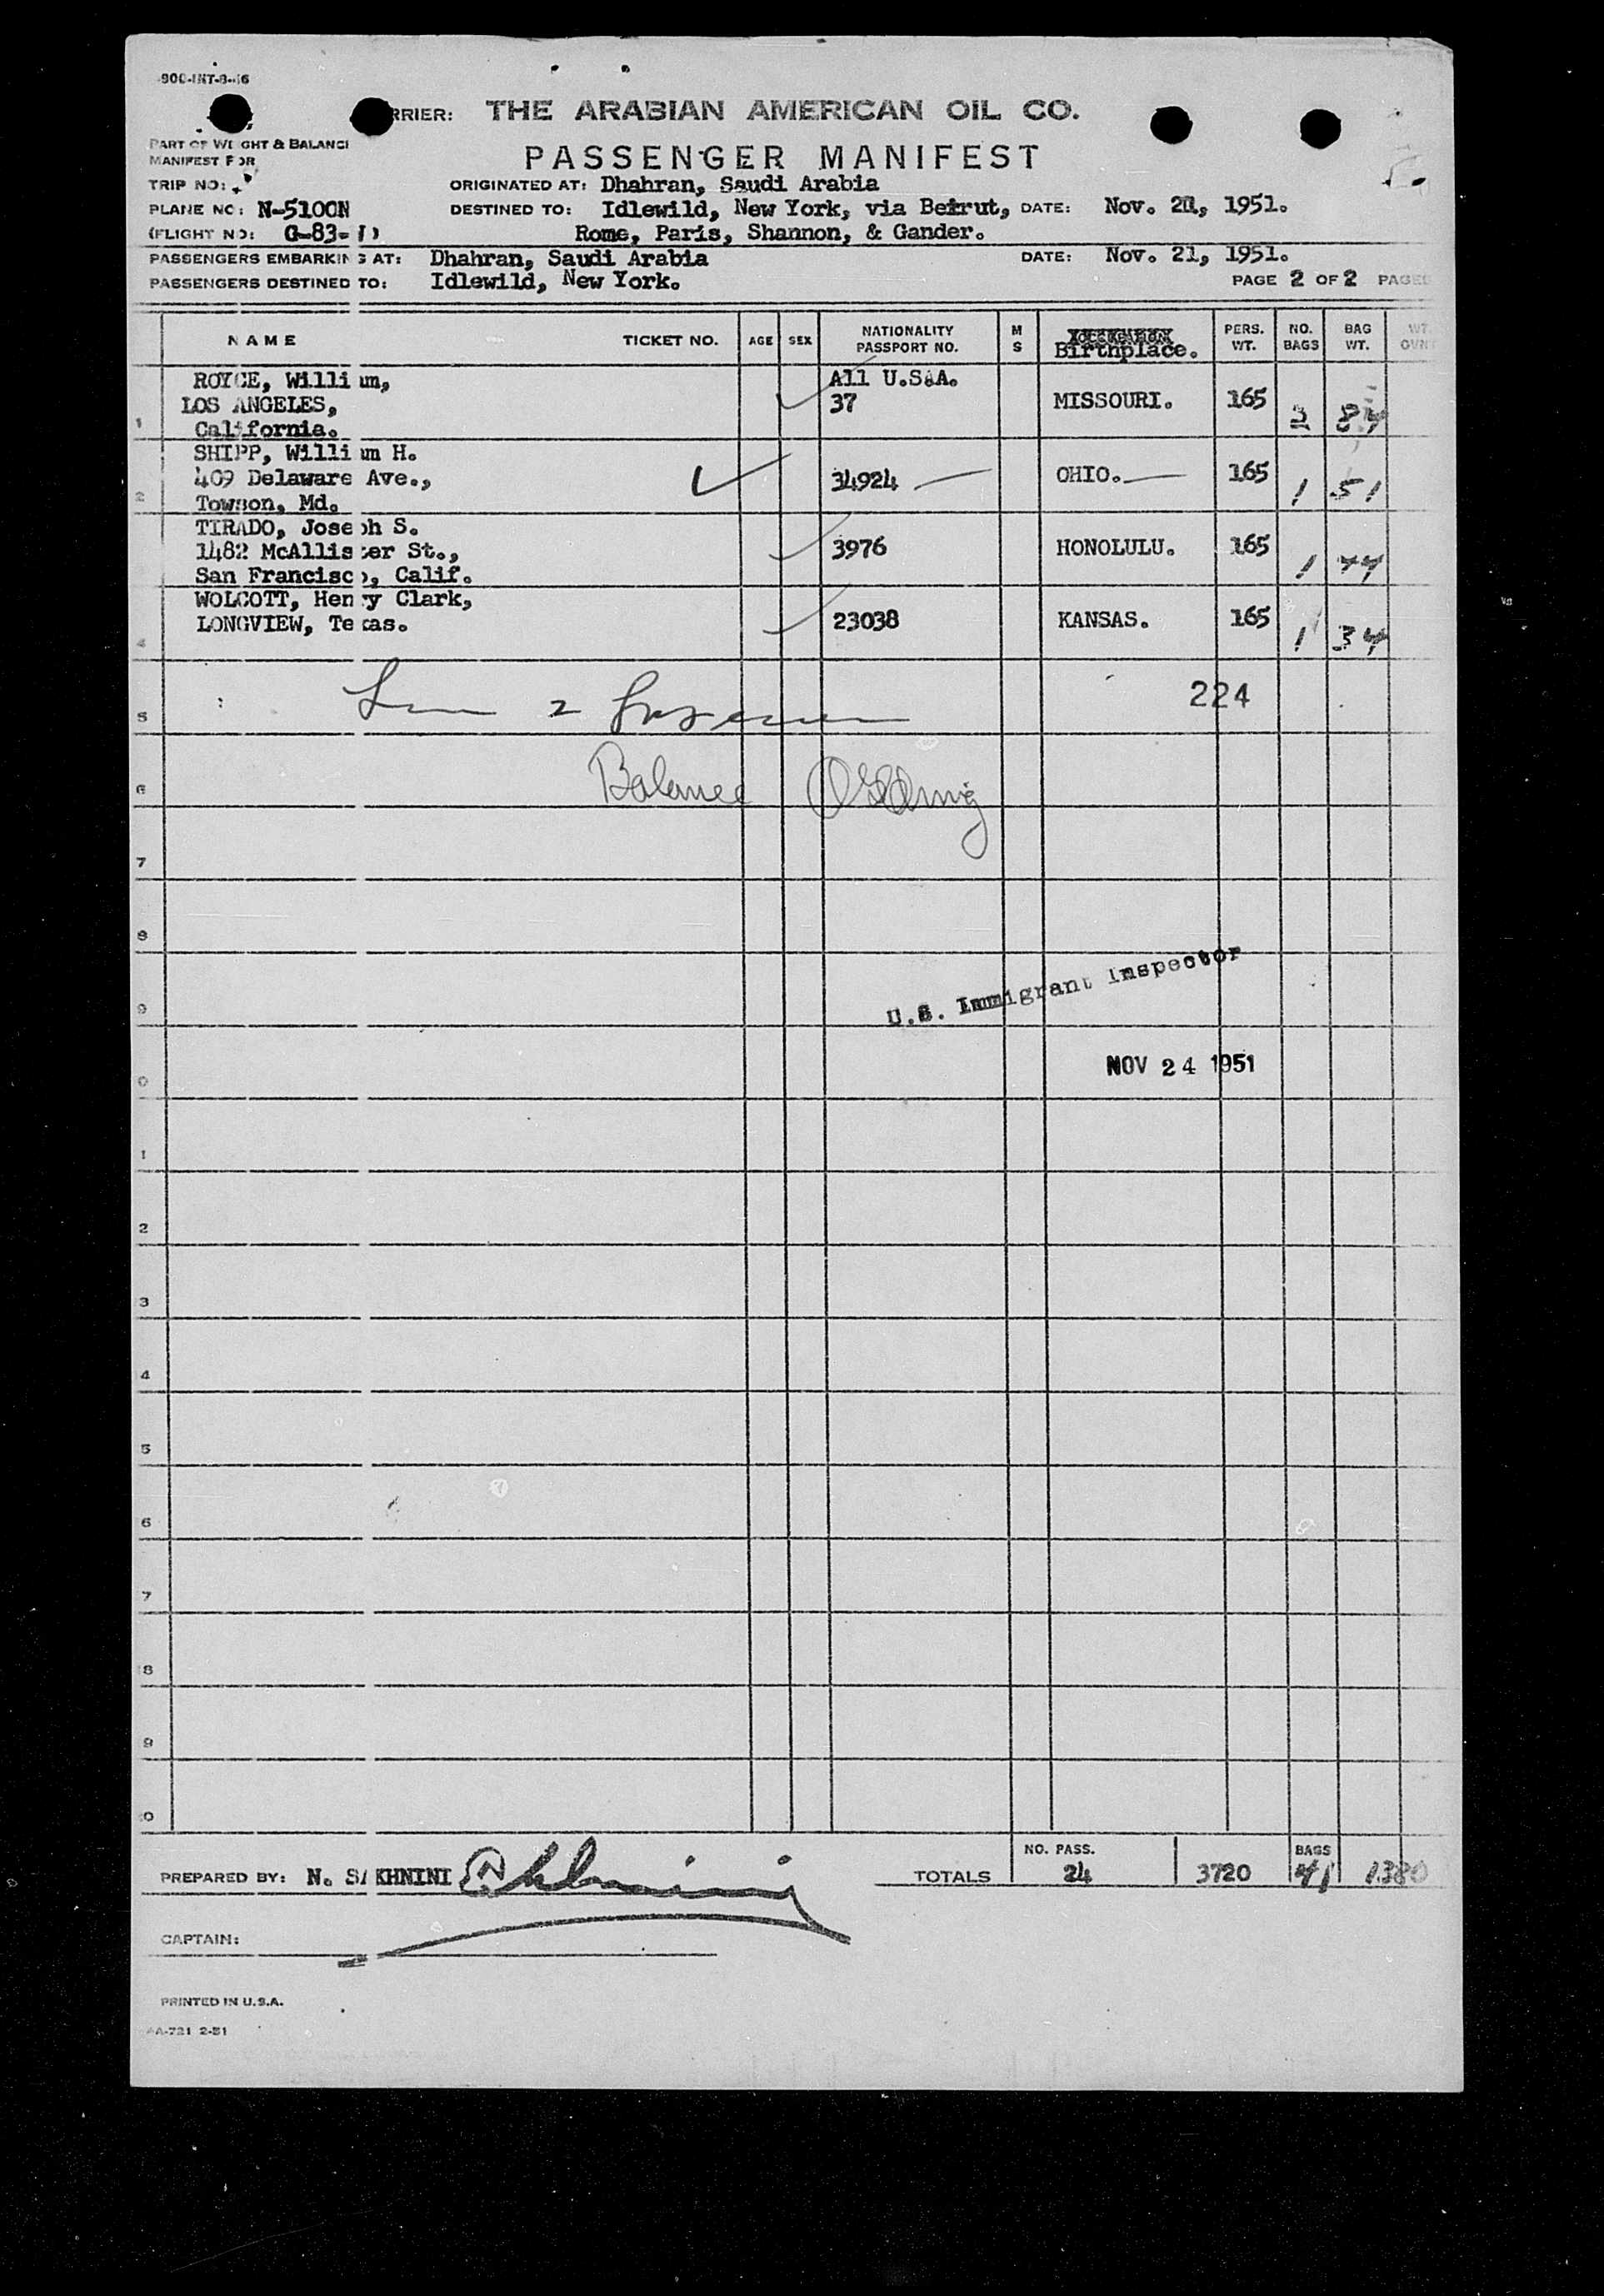 900-INT-8-16
RRIER: THE ARABIAN AMERICAN OIL CO.
PART OF WEIGHT & BALANCE
MANIFEST FOR
PASSENGER MANIFEST
TRIP NO:
ORIGINATED AT: Dhahran, Saudi Arabia
PLANE NO: N-5100N
DESTINED TO: Idlewild, New York, via Beirut, DATE: Nov. 21, 1951.
(FLIGHT NO: G-83-
Rome, Paris, Shannon, & Gander.
PASSENGERS EMBARKING AT: Dhahran, Saudi Arabia DATE: Nov. 21, 1951.
PASSENGERS DESTINED TO: Idlewild, New York. PAGE 2 OF 2 PAGES
NAME TICKET NO. AGE SEX NATIONALITY PASSPORT NO. M S Birthplace. PERS. WT. NO. BAGS BAG WT.
ROYCE, William, All U.S.A.
1 LOS ANGELES, 37 MISSOURI. 165
California.
SHIPP, William H.
2 409 Delaware Ave., 34924 OHIO. 165 1 51
Towson, Md.
TIRADO, Joseph S.
1482 McAllister St., 3976 HONOLULU. 165 1 44
San Francisco, Calif.
WOLCOTT, Henry Clark,
4 LONGVIEW, Texas. 23038 KANSAS. 165 1 34
224
5
6 Balance
7
8
9
U.S. Immigrant Inspector
0
NOV 24 1951
1
2
3
4
5
6
7
8
9
0
PREPARED BY: N. SAKHNINI TOTALS NO. PASS. 24 3720 BAGS 41 1380
CAPTAIN:
PRINTED IN U.S.A.
AA-721 2-51